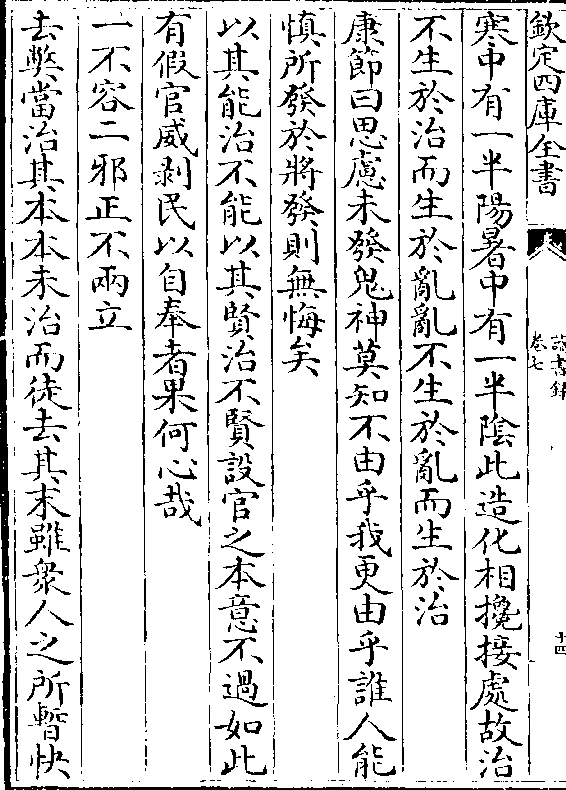 欽定四庫全書
讀書録
卷七
十四
寒中有一半陽暑中有一半陰此造化相攙接處故治
不生於治而生於亂亂不生於亂而生於治
康節曰思慮未發鬼神莫知不由乎我更由乎誰人能
慎所發於將發則無悔矣
以其能治不能以其賢治不賢設官之本意不過如此
有假官威剥民以自奉者果何心哉
一不容二邪正不兩立
去弊當治其本本未治而徒去其末雖衆人之所暫快